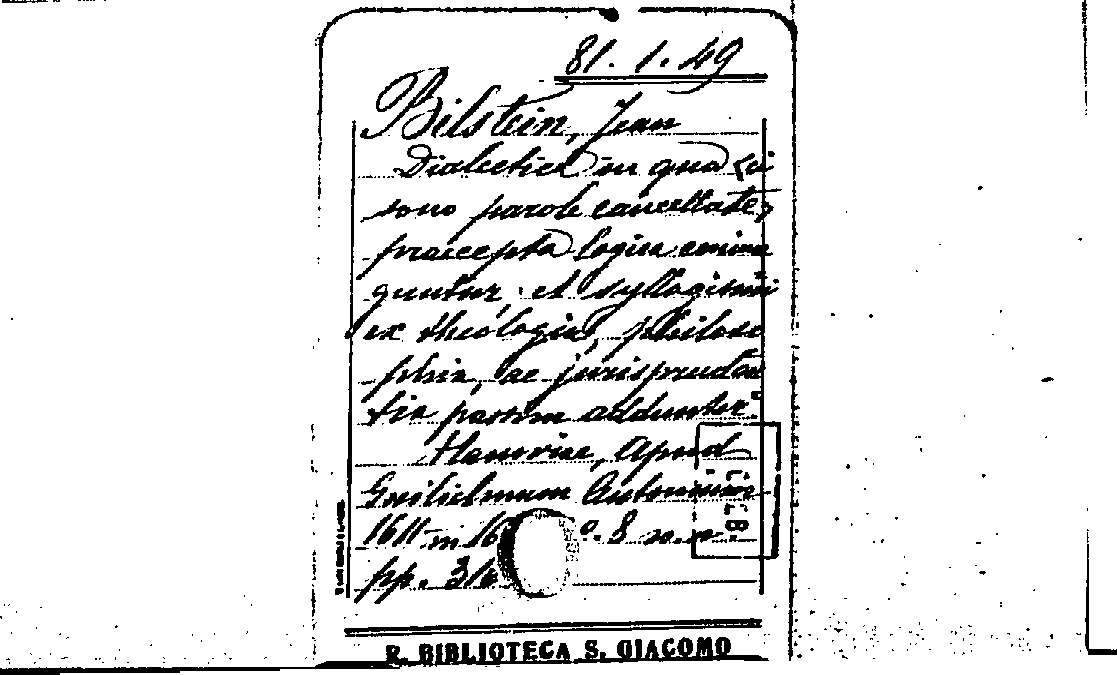 81. 1. 49
Bilstein, Jean
Dialectica in qua <ci
sono parole cancellate>
praecepta logica
guntur, et syllogismi
ex theologia, philoso
phia, ac jurispruden
tia passim adduntur.
Hanoviae, apud
Guilielmum Antonium
1611 in 16 °. 8 n.n.
pp. 316
ICCB
R. BIBLIOTECA S. GIACOMO